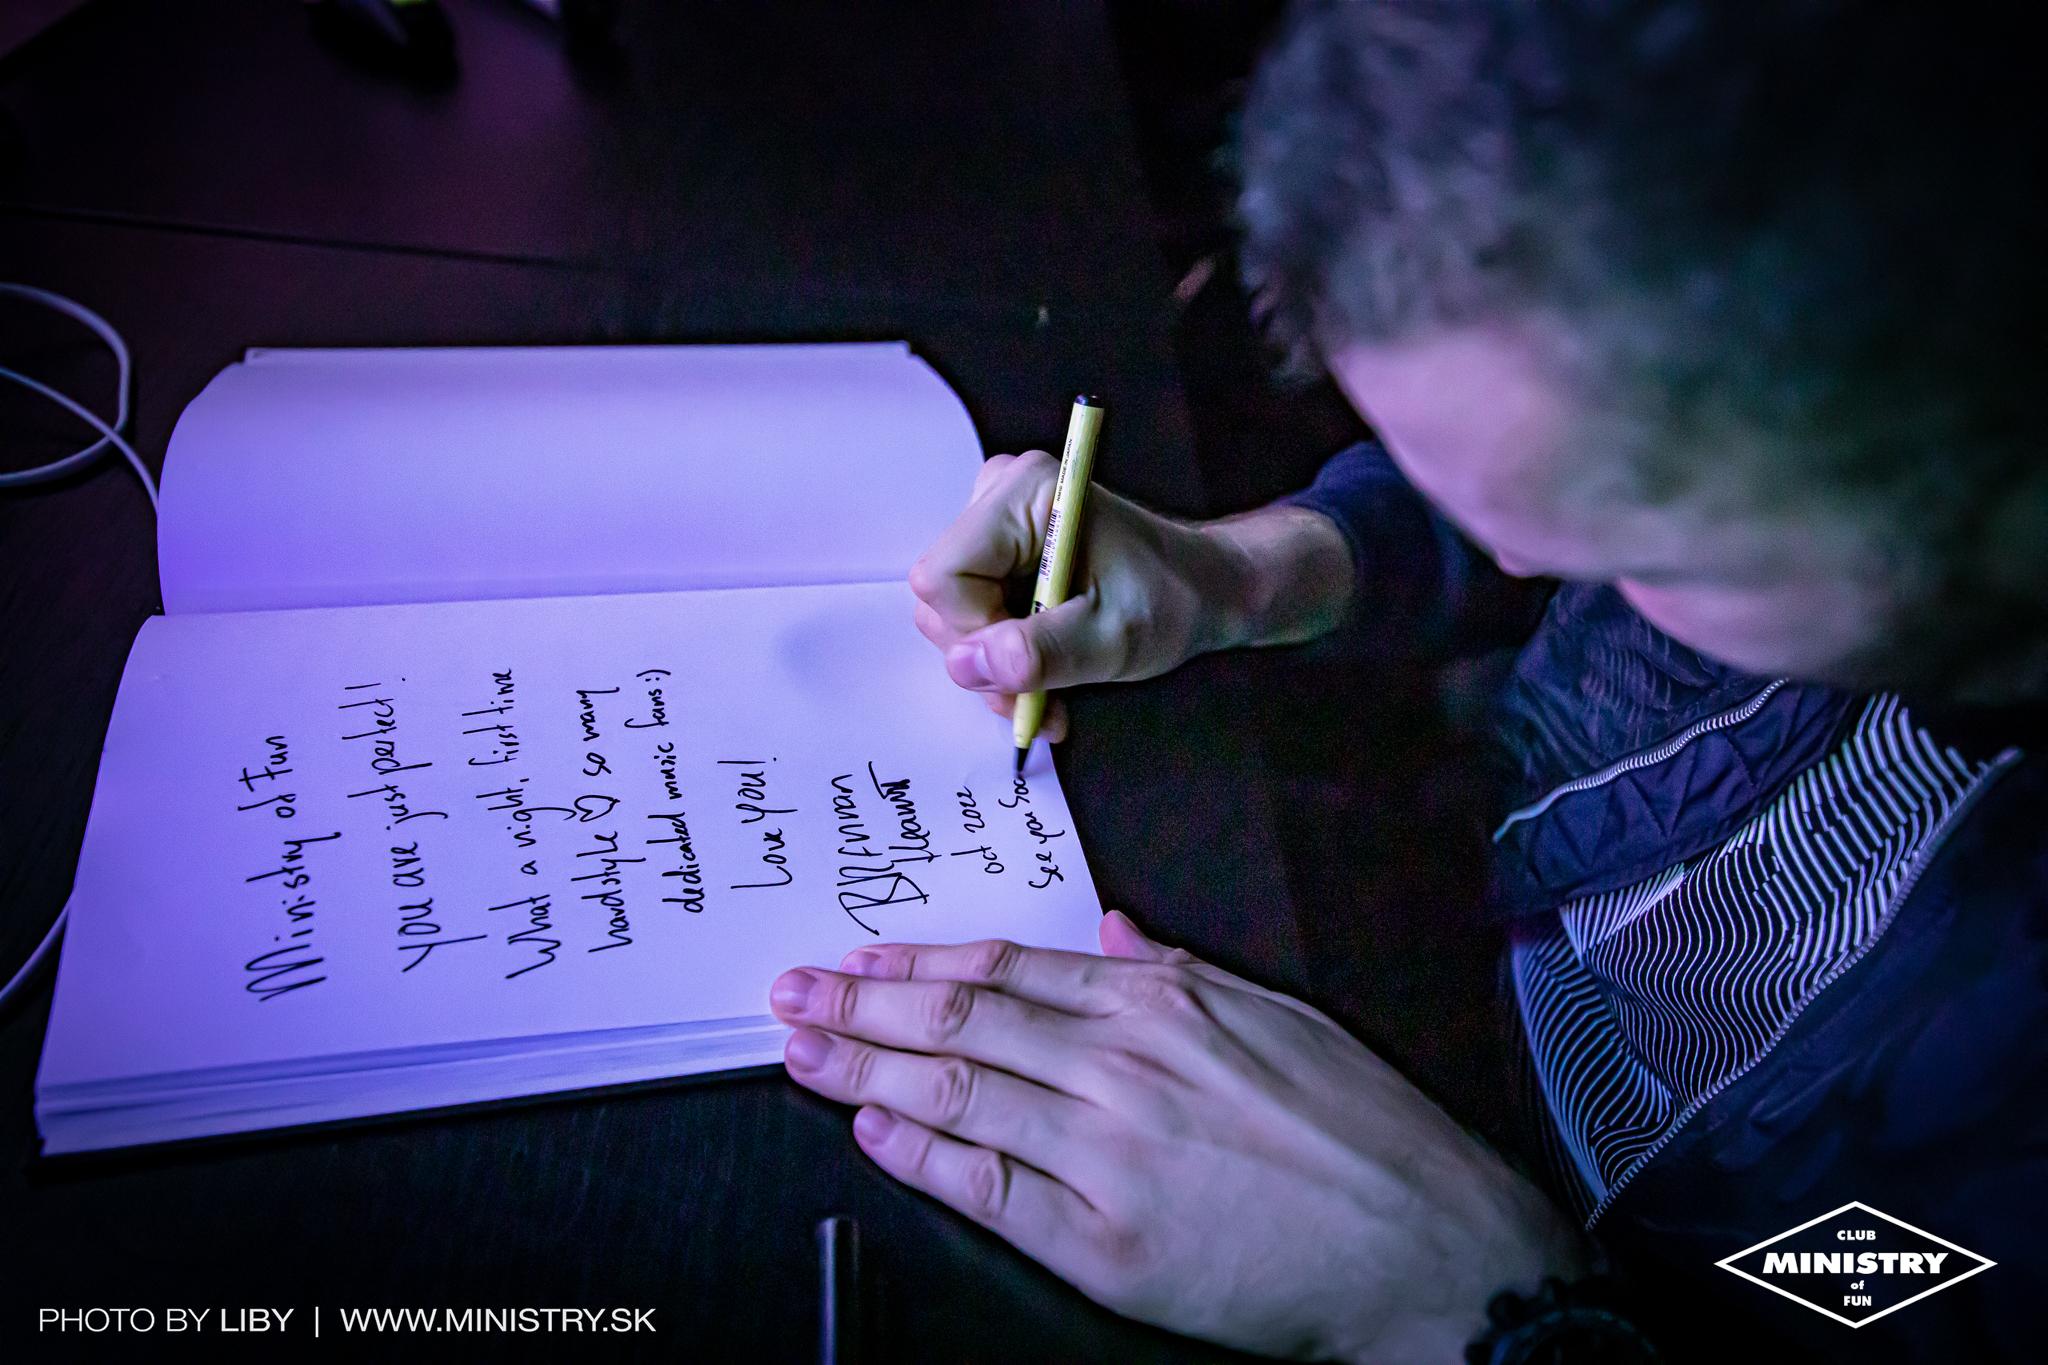 Ministry of Fun
You are just perfect!
What a night, first time
hardstyle ♡ so many
dedicated music fans :)
Love you!
Brennan
Heart
oct 2022
See you Soo
PHOTO BY LIBY | WWW.MINISTRY.SK
CLUB
MINISTRY
of
FUN